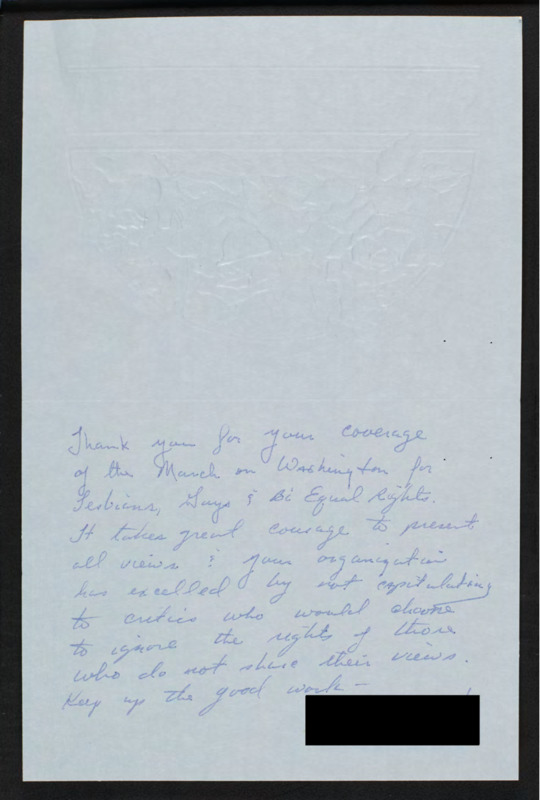 Thank you for your coverage
of the March on Washington for
Lesbians, Gays & Bi Equal Rights.
It takes great courage to present
all views & your organization
has excelled by not capitulating
to critics who would choose
to ignore the rights of those
who do not share their views.
Keep up the good work -